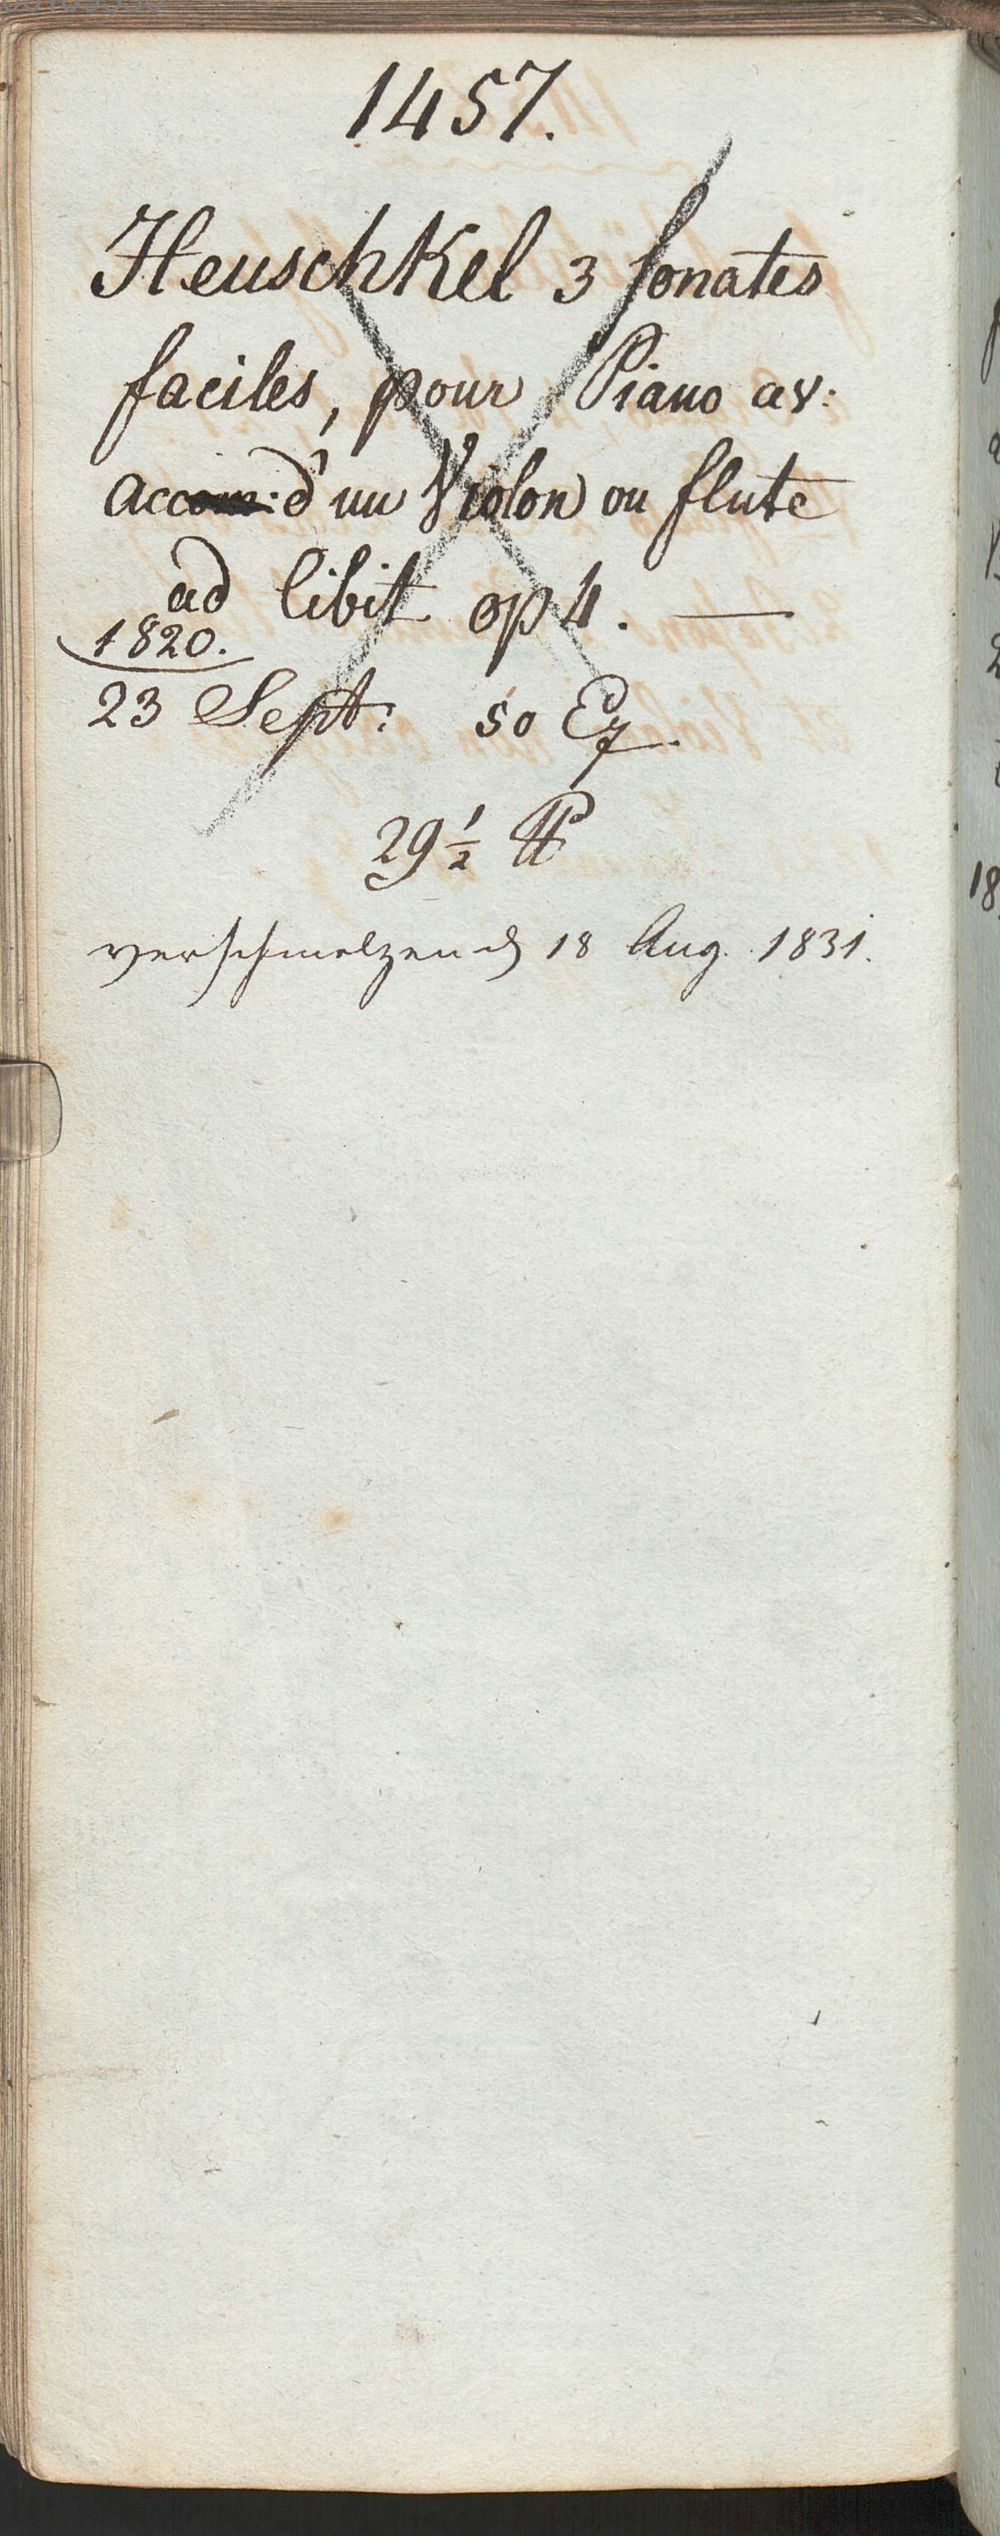 1457.
Heuschkel 3 Sonates
faciles, pour Piano av:
accom: d'un Violon ou flute
ad libit op 4. —
1820.
23 Sept: 50 Ex
29 1/2 ℔
verschmelzen d 18 Aug. 1831.